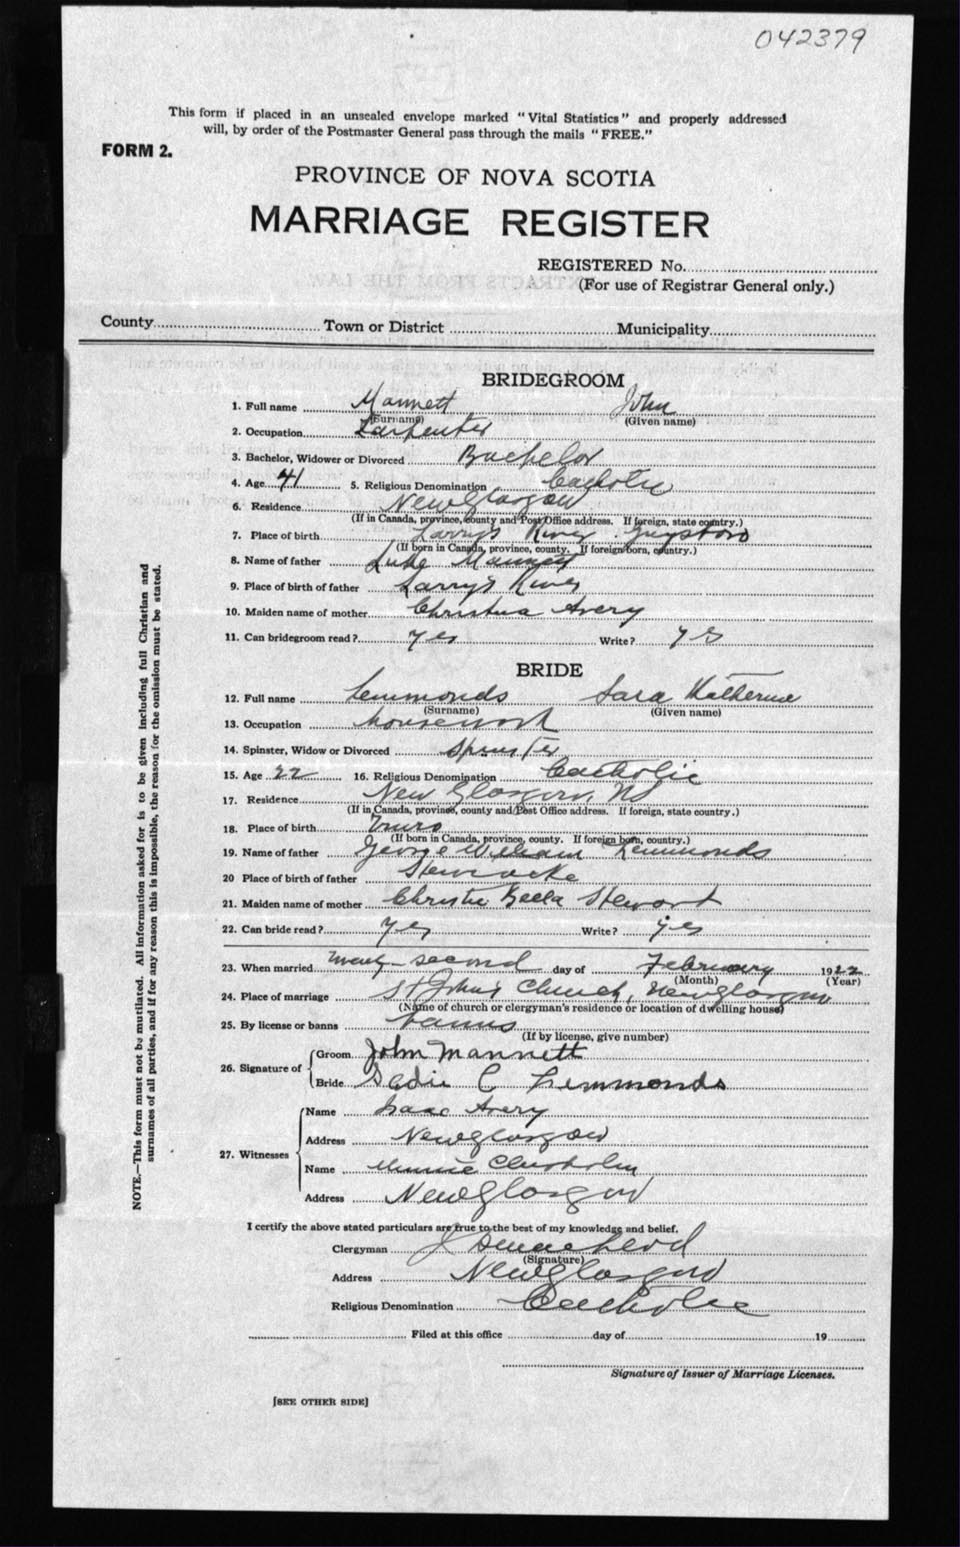 042379
This form if placed in an unsealed envelope marked "Vital Statistics" and properly addressed
will, by order of the Postmaster General pass through the mails "FREE."
FORM 2.
PROVINCE OF NOVA SCOTIA
MARRIAGE REGISTER
REGISTERED No.
(For use of Registrar General only.)
County Town or District Municipality
BRIDEGROOM
1. Full name Mannett John
(Surname) (Given name)
2. Occupation Carpenter
3. Bachelor, Widower or Divorced Bachelor
4. Age 41 5. Religious Denomination Catholic
6. Residence New Glasgow
(If in Canada, province, county and Post Office address. If foreign, state country.)
7. Place of birth Larrys River Guysboro
(If born in Canada, province, county. If foreign born, country.)
8. Name of father Luke Mannett
9. Place of birth of father Larrys River
10. Maiden name of mother Christina Avery
11. Can bridegroom read? yes Write? yes
BRIDE
12. Full name Lemmonds Sara Katherine
(Surname) (Given name)
13. Occupation housework
14. Spinster, Widow or Divorced Spinster
15. Age 22 16. Religious Denomination Catholic
17. Residence New Glasgow, NS
(If in Canada, province, county and Post Office address. If foreign, state country.)
18. Place of birth Truro
(If born in Canada, province, county. If foreign born, country.)
19. Name of father George William Lemmonds
20 Place of birth of father Stewiacke
21. Maiden name of mother Christie Bella Stewart
22. Can bride read? yes Write? yes
23. When married twenty-second day of February 1922
(Month) (Year)
24. Place of marriage St Johns Church, New Glasgow
(Name of church or clergyman's residence or location of dwelling house)
25. By license or banns banns
(If by license, give number)
26. Signature of Groom John Mannett
Bride Sadie C Lemmonds
27. Witnesses Name Isaac Avery
Address New Glasgow
Name Minnie Chisholm
Address New Glasgow
I certify the above stated particulars are true to the best of my knowledge and belief.
Clergyman
(Signature)
Address New Glasgow
Religious Denomination Catholic
Filed at this office day of 19
Signature of Issuer of Marriage Licenses.
[SEE OTHER SIDE]
NOTE.—This form must not be mutilated. All information asked for is to be given including full Christian and
surnames of all parties, and if for any reason this is impossible, the reason for the omission must be stated.